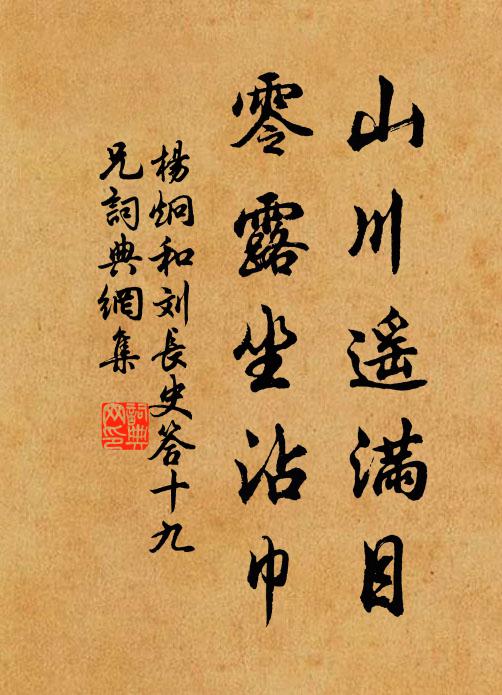 山川遥满目
零露坐沾巾
杨炯和刘长史答十九
兄词典网集
词典
网印